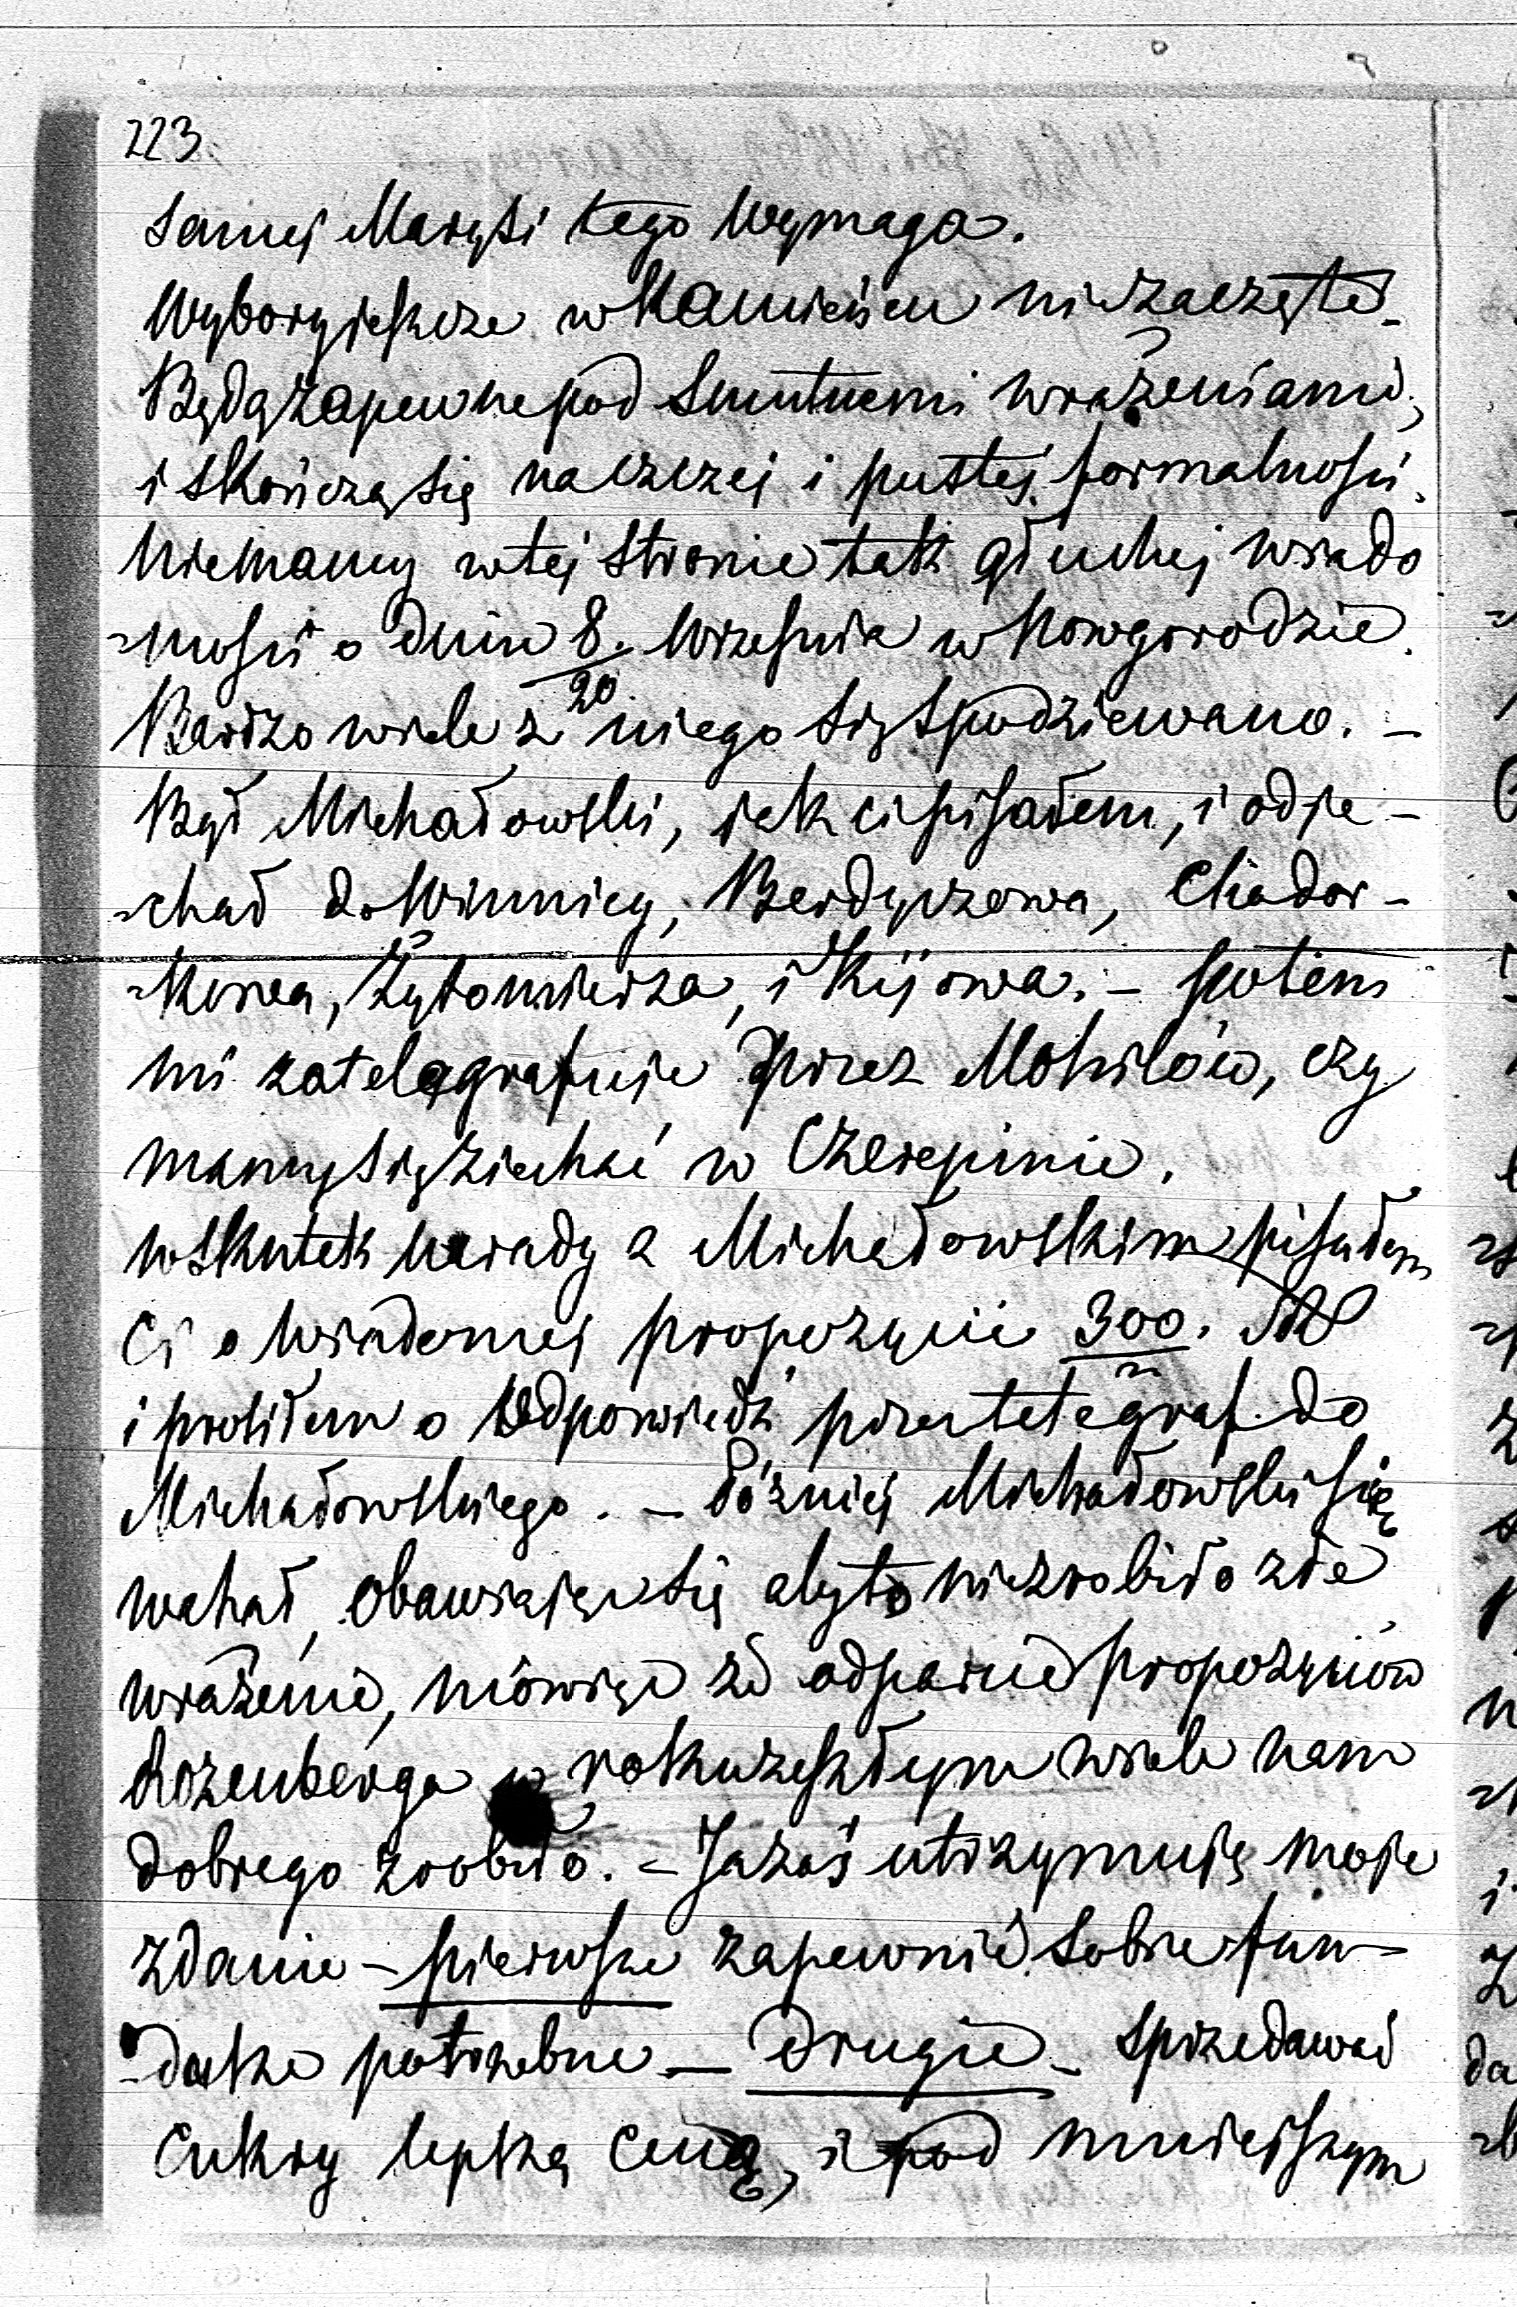 223.
samej Marysi tego wymaga.
Wybory jeszcze w Kamieńcu nie zaczęte.
Będą zapewne pod smutnemi wrażeniami,
i skończą się na czczej i pustej formalności.
Nie mamy w tej stronie tak głuchej wiado
-mości o dniu 8/20. Września w Nowgorodzie.
Bardzo wiele z niego się spodziewano. –
Był Michałowski, jak ci pisałem, i odje-
-chał do Winnicy, Berdyczowa, Chador-
-kowa, Żytomierza, i Kijowa. – potem
mi zatelegrafuje przez Mohilów, czy
mamy się zjechać w Czerepinie.
wskutek narady z Michałowskim pisałem
Ci o wiadomej propozycii 300.
i prosiłem o odpowiedź przez telegraf do
Michałowskiego. – Później Michałowski się
wahał, obawiając się aby to nie zrobiło złe
wrażenie, mówiąc że odparcie propozyciów
Rozenberga w roku zeszłym wiele nam
dobrego zrobiło. – Ja zaś utrzymuję moje
zdanie – pierwsze zapewnić sobie fun-
-dusze potrzebne – drugie – sprzedawać
cukry lepszą ceną, i pod mniejszym